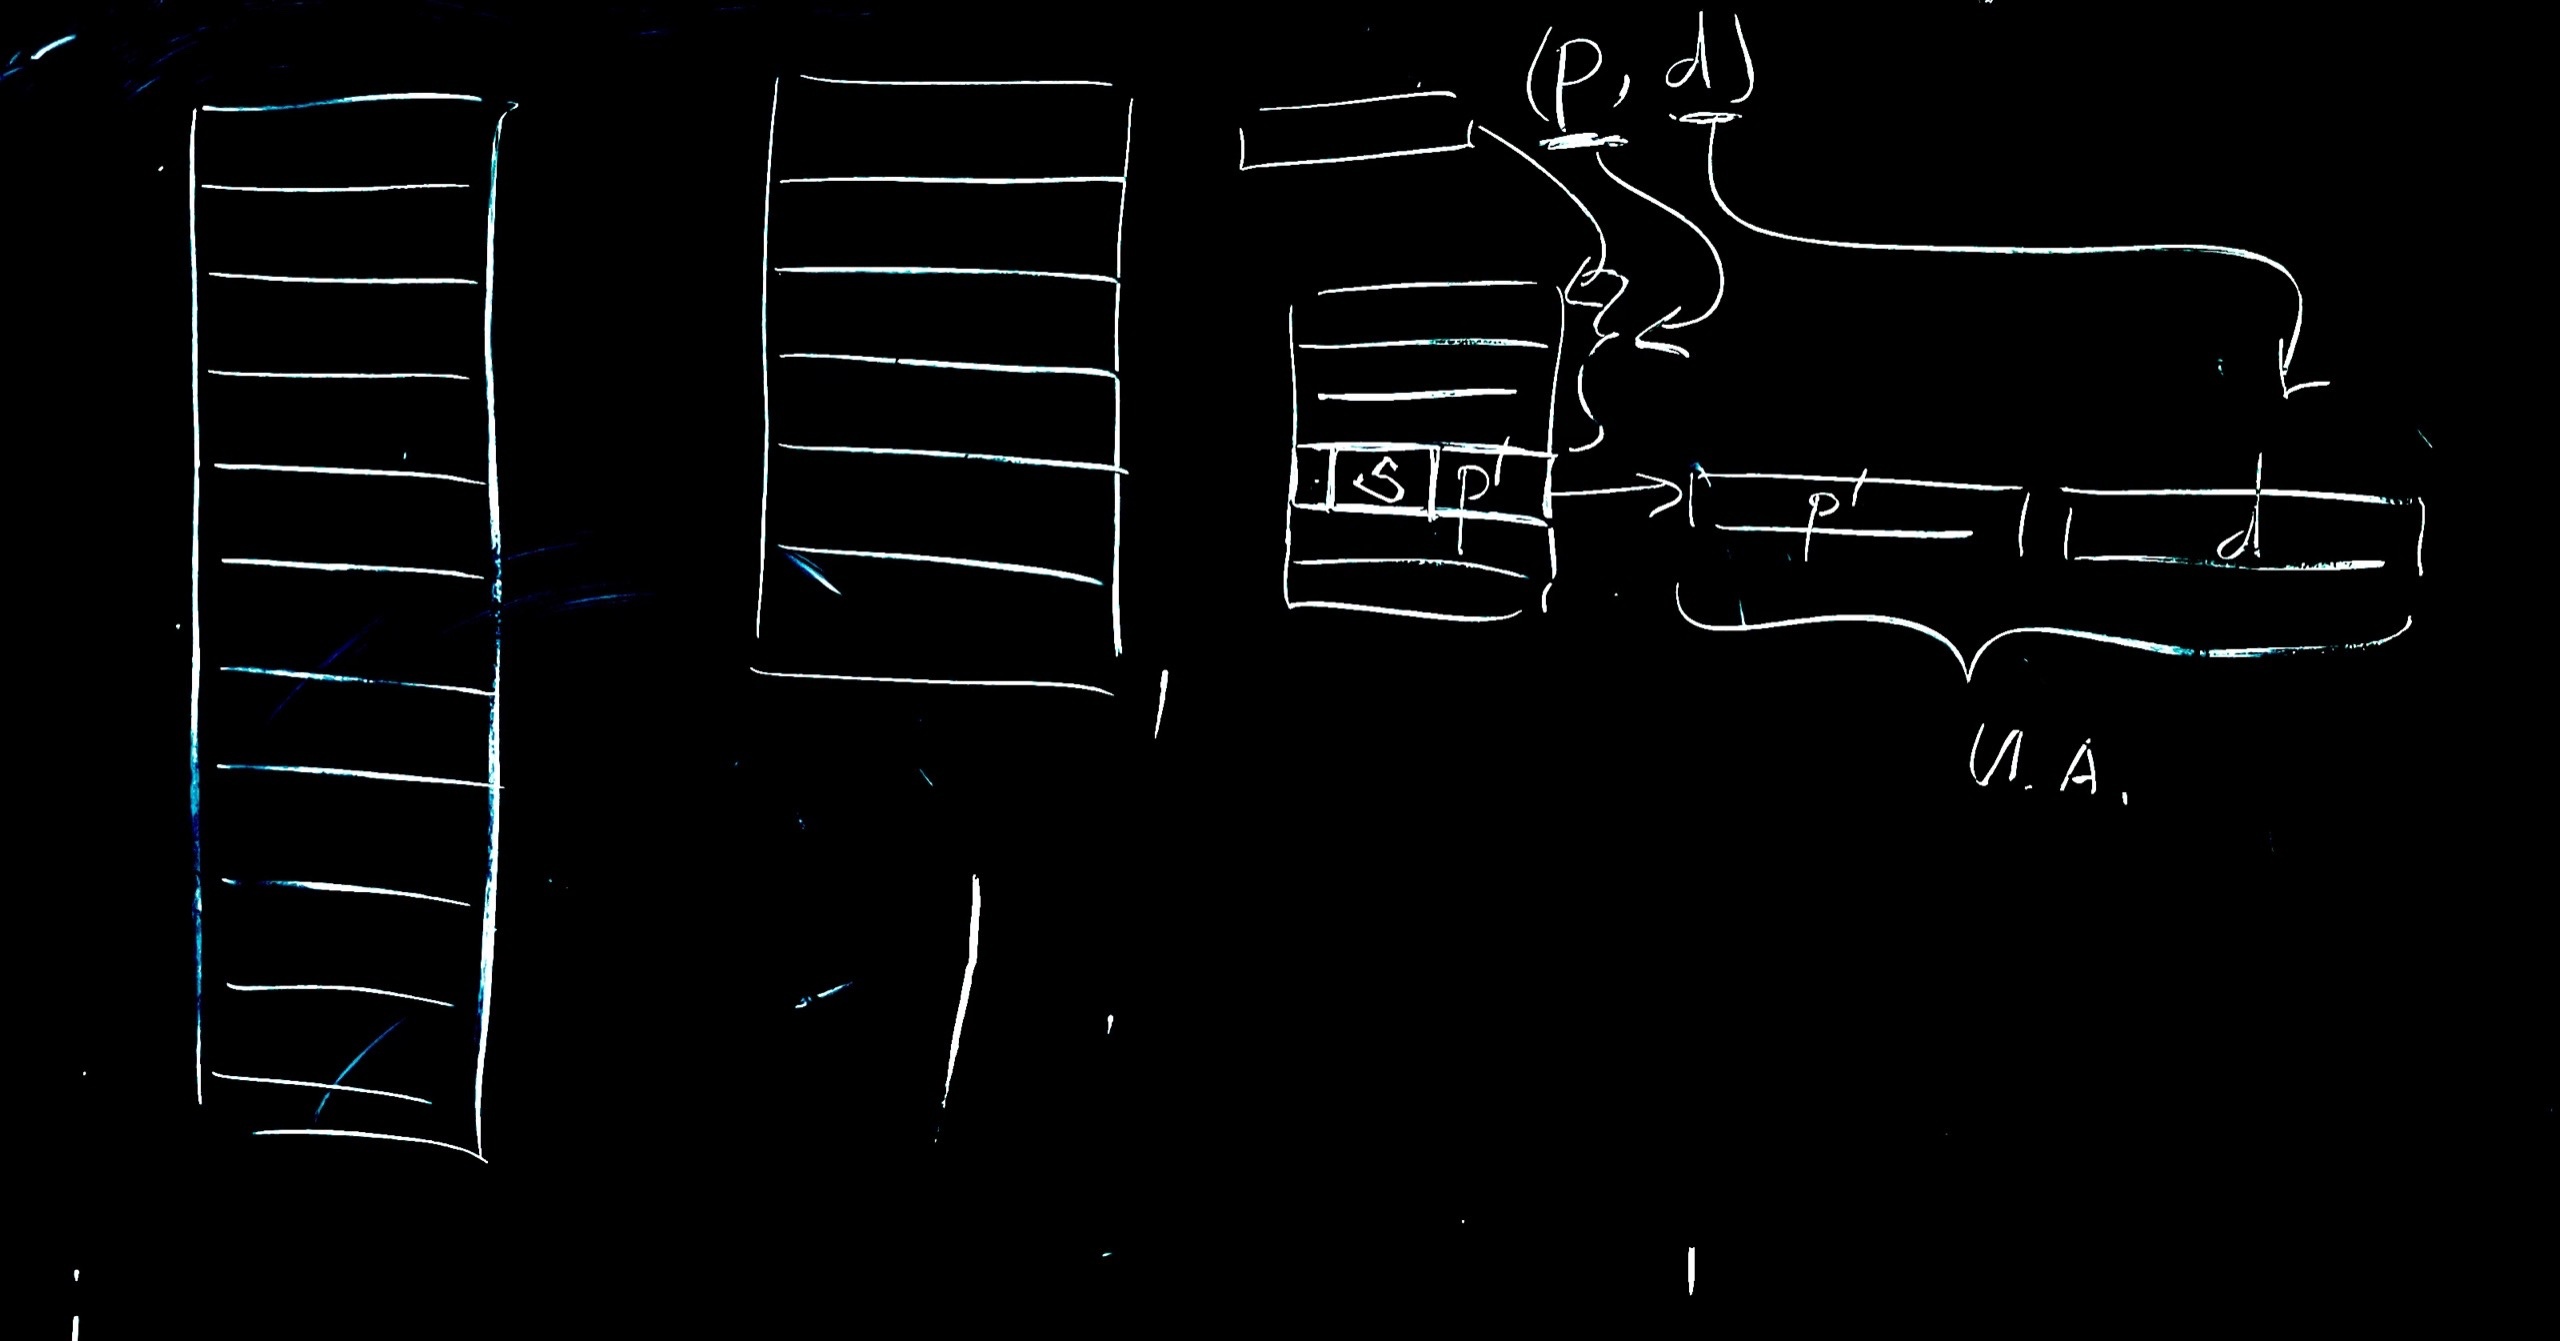 (p, d)
S p'
p' d
U.A.